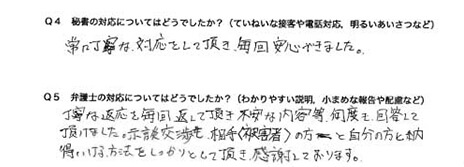 Q4　秘書の対応についてはどうでしたか？（ていねいな接客や電話対応，明るいあいさつなど）
常に丁寧な、対応をして頂き、毎回安心できました。
Q5　弁護士の対応についてはどうでしたか？（わかりやすい説明，小まめな報告や配慮など）
丁寧な返応を毎回返して頂き不安な内容等、何度も、回答して
頂けました。示談交渉も、相手（被害者）の方と自分の方とも納
得いける方法をしっかりとして頂き、感謝しております。